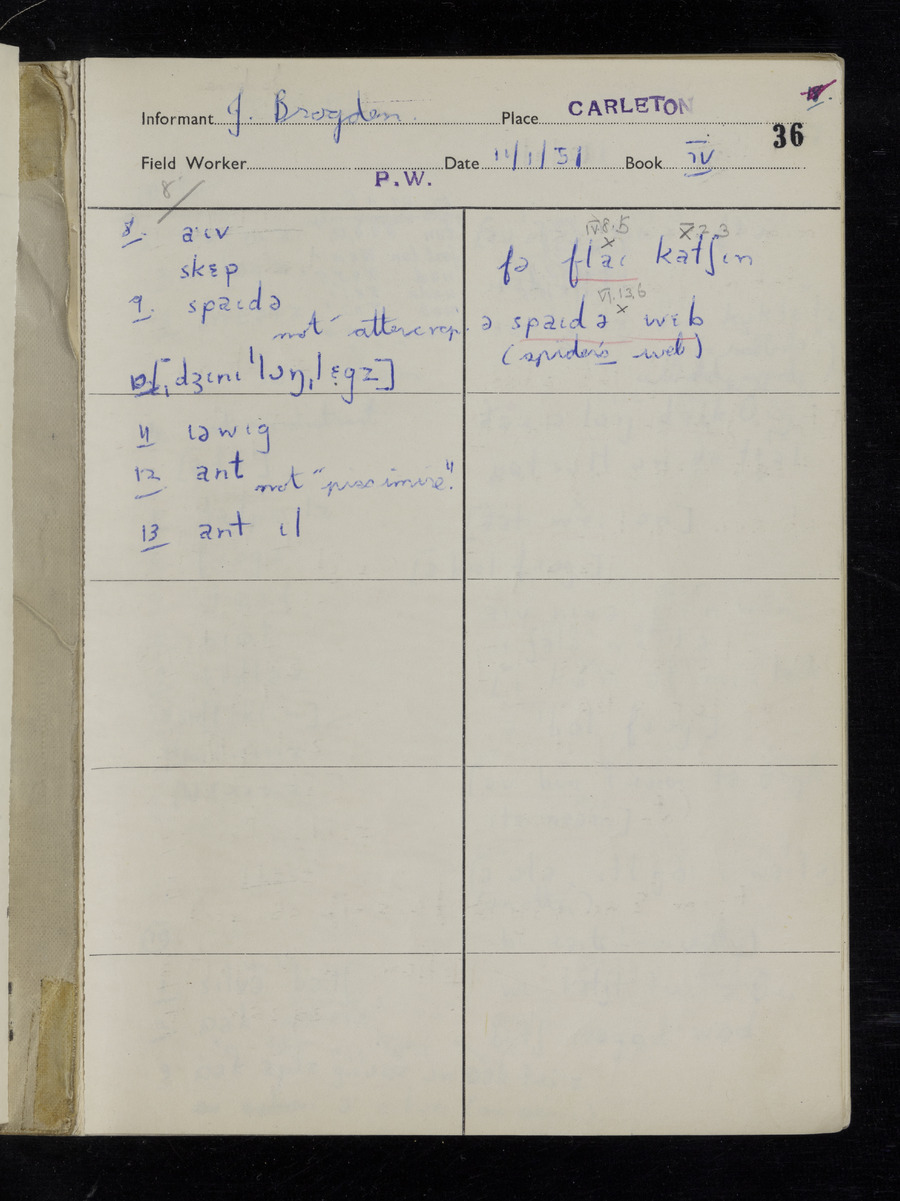 Informant J. Brogden Place CARLETON
36
Field Worker P.W. Date 11/1/51 Book IV
8/
8. aːɪv
skɛp
9. spaɪdə
not "attercrop
10. [ˌdʒɪnɪ ˈlɒŋˌlɛgz]
11 ɪəwɪg
12 ant
not "pissimire".
13 ant ɪl
IV.8.5 V.2.3
fə flaɪ katʃɪn
VI.13.6
ə spaɪdə wɛb
(spider's web)